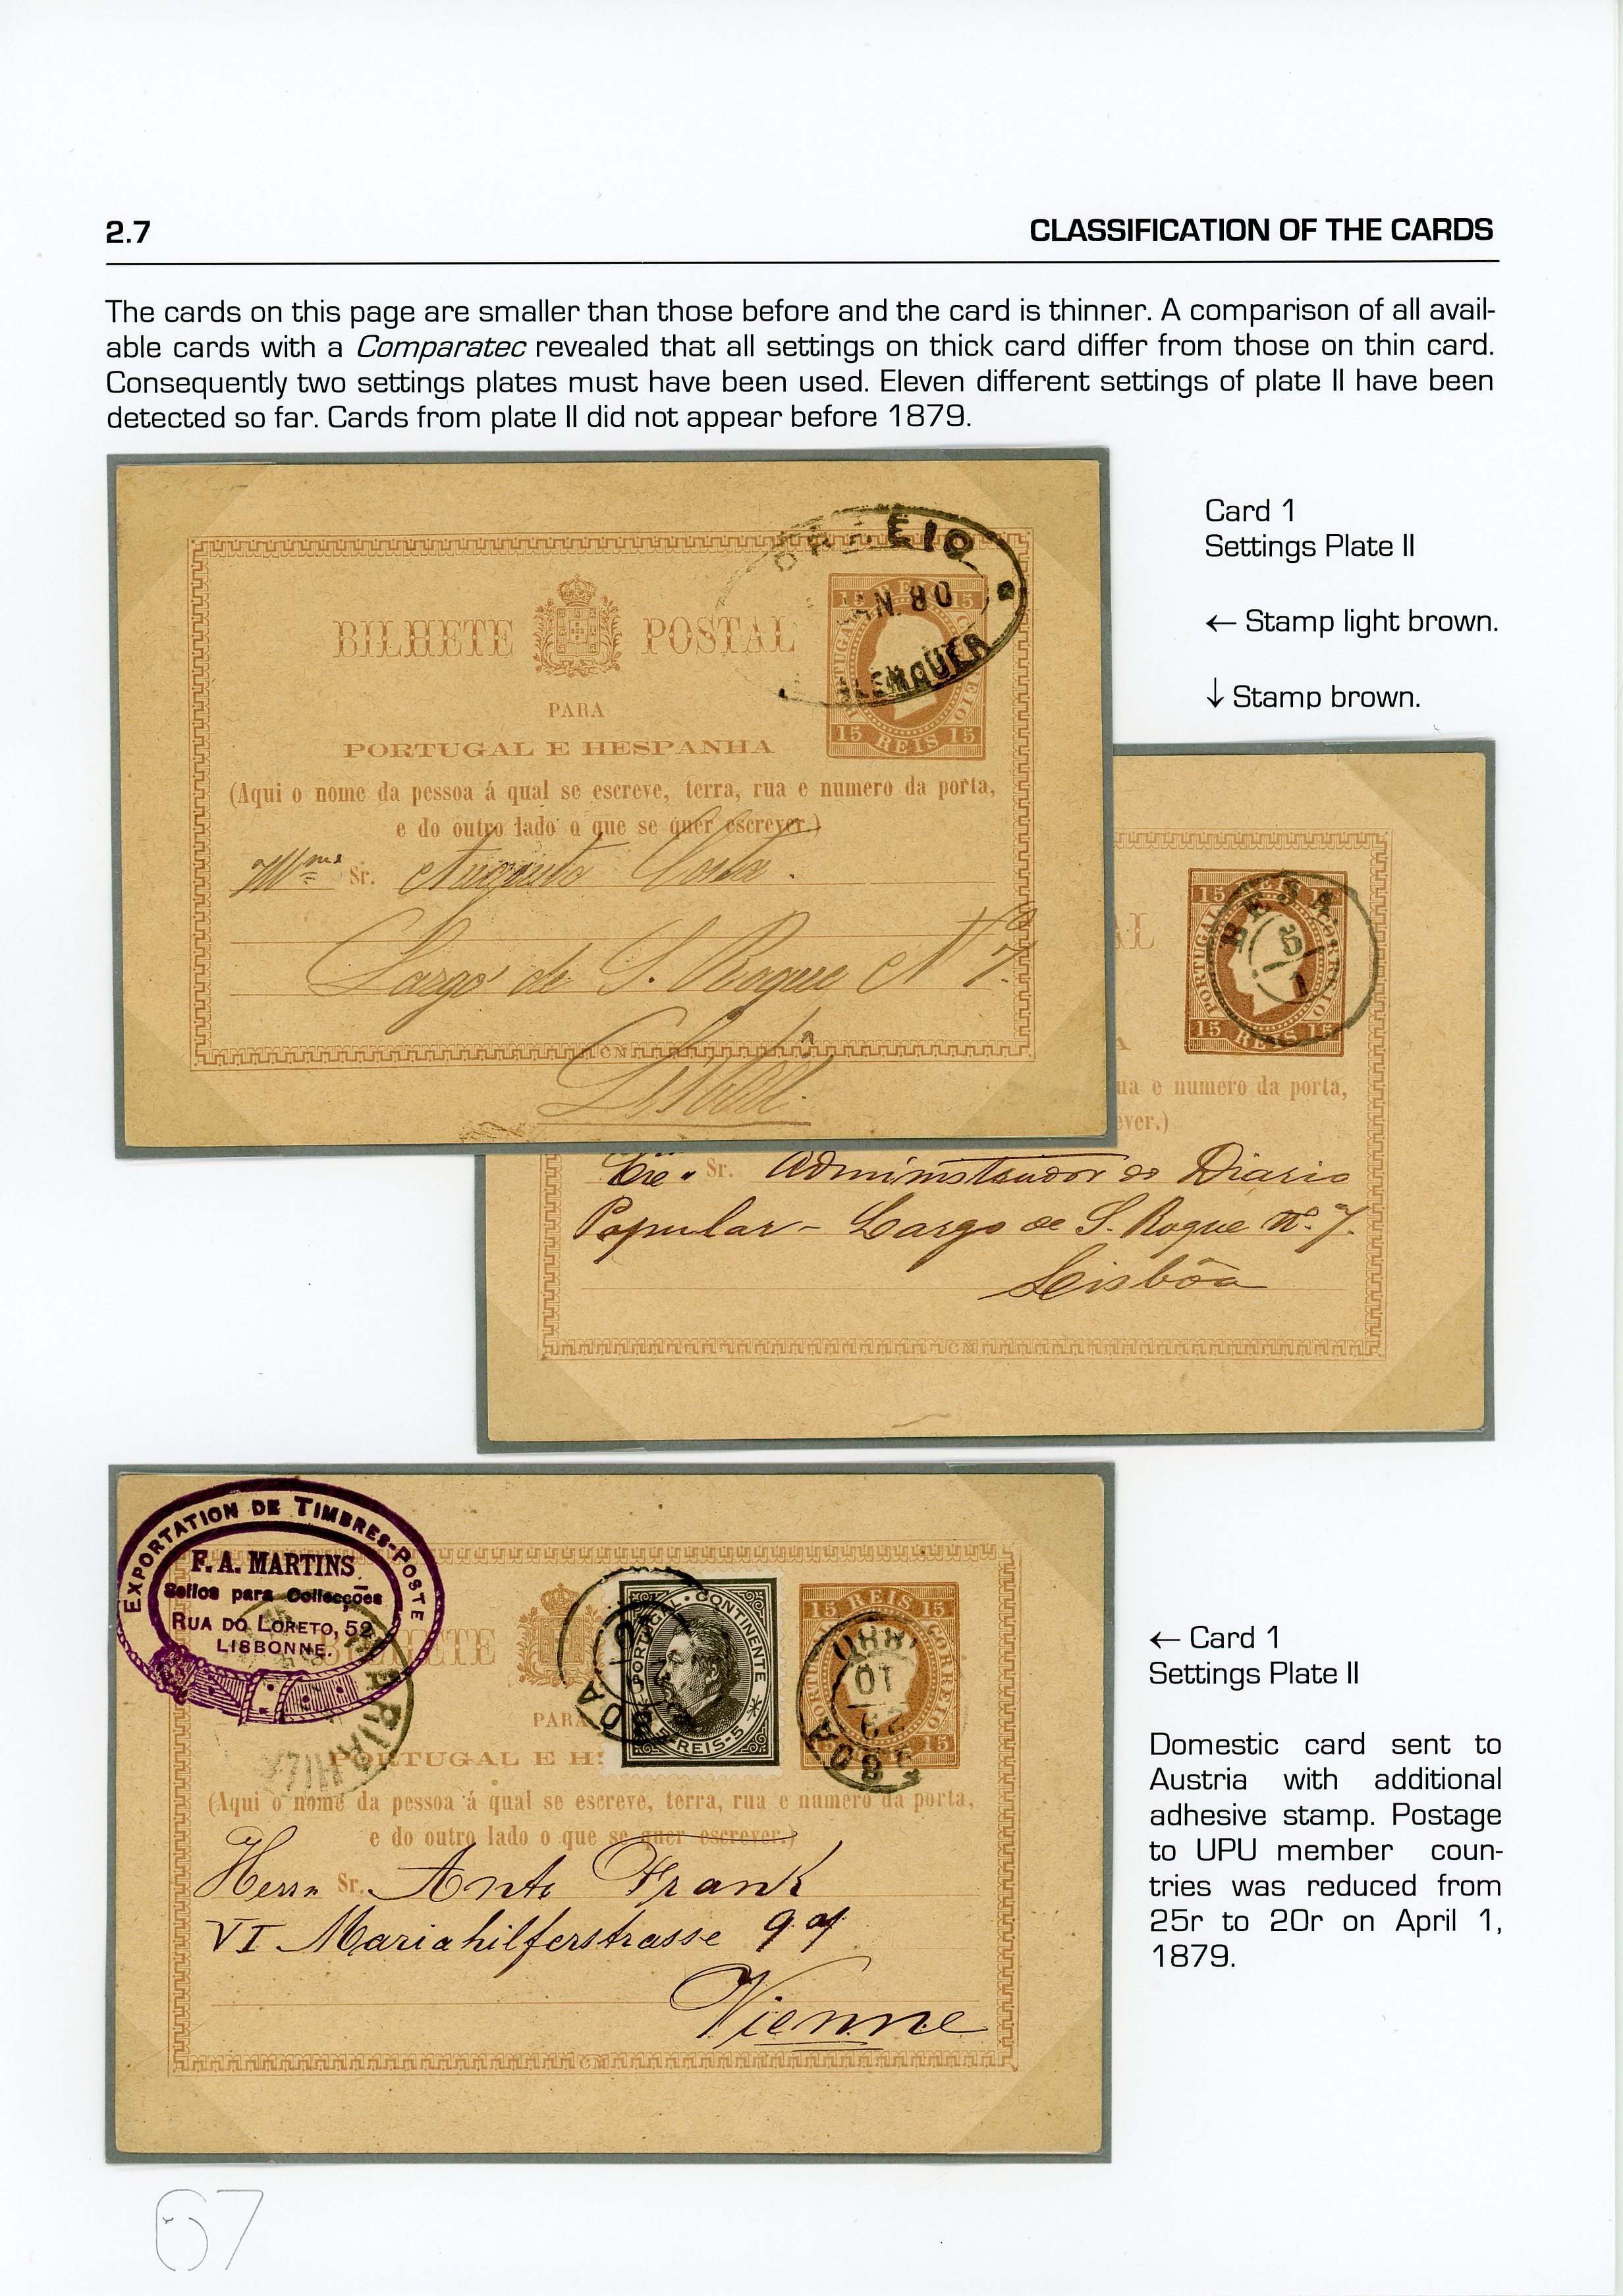 2.7 CLASSIFICATION OF THE CARDS
The cards on this page are smaller than those before and the card is thinner. A comparison of all avail-
able cards with a Comparatec revealed that all settings on thick card differ from those on thin card.
Consequently two settings plates must have been used. Eleven different settings of plate II have been
detected so far. Cards from plate II did not appear before 1879.
Card 1
Settings Plate II
← Stamp light brown.
↓ Stamp brown.
EIO
80
LEMQUER
BILHETE POSTAL
15 REIS 15
PARA
PORTUGAL E HESPANHA
(Aqui o nome da pessoa á qual se escreve, terra, rua e numero da porta,
e do outro lado o que se quer escrever.)
Sr. Augusto Costa.
Largo de S. Roque Nº 7.
CN
Lisboa.
AL
15 REIS 15
PORTUGAL CORREIO
15 REIS 15
A
ua e numero da porta,
ever.)
Sr. Administrador do Diario
Popular - Largo de S. Roque nº 7.
Lisbôa
CM
EXPORTATION DE TIMBRES-POSTE
F. A. MARTINS
Sellos para Collecções
RUA DO LORETO, 52
LISBONNE.
PORTUGAL · CONTINENTE
5-REIS-5
15 REIS 15
PORTUGAL CORREIO
1880
10
PARA
PORTUGAL E H
(Aqui o nome da pessoa á qual se escreve, terra, rua e numero da porta,
e do outro lado o que se quer escrever.)
Herrn Sr. Frank
VI Mariahilferstrasse
Vienne
CM
← Card 1
Settings Plate II
Domestic card sent to
Austria with additional
adhesive stamp. Postage
to UPU member coun-
tries was reduced from
25r to 20r on April 1,
1879.
67